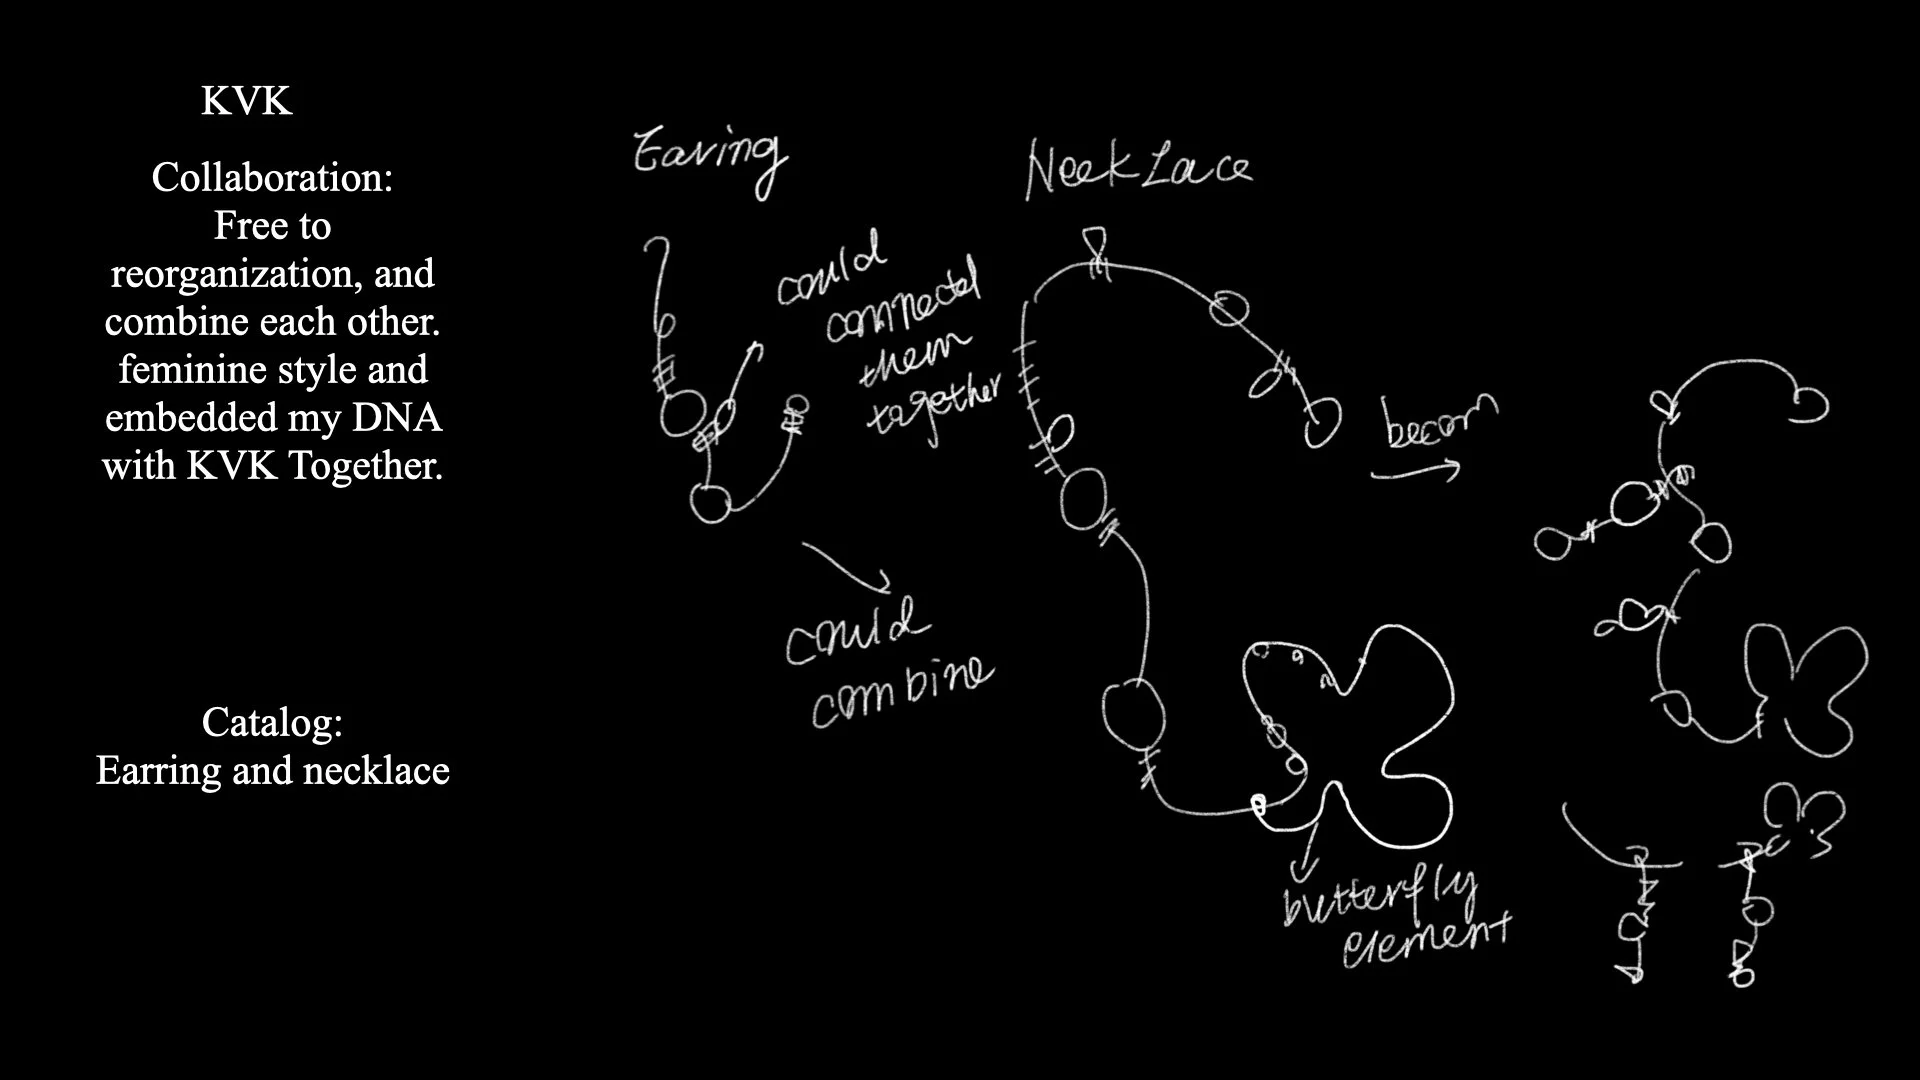 KVK
Collaboration:
Free to
reorganization, and
combine each other.
feminine style and
embedded my DNA
with KVK Together.
Catalog:
Earring and necklace
Earing
could
connected
them
together
could
combine
NeckLace
becom
butterfly
element